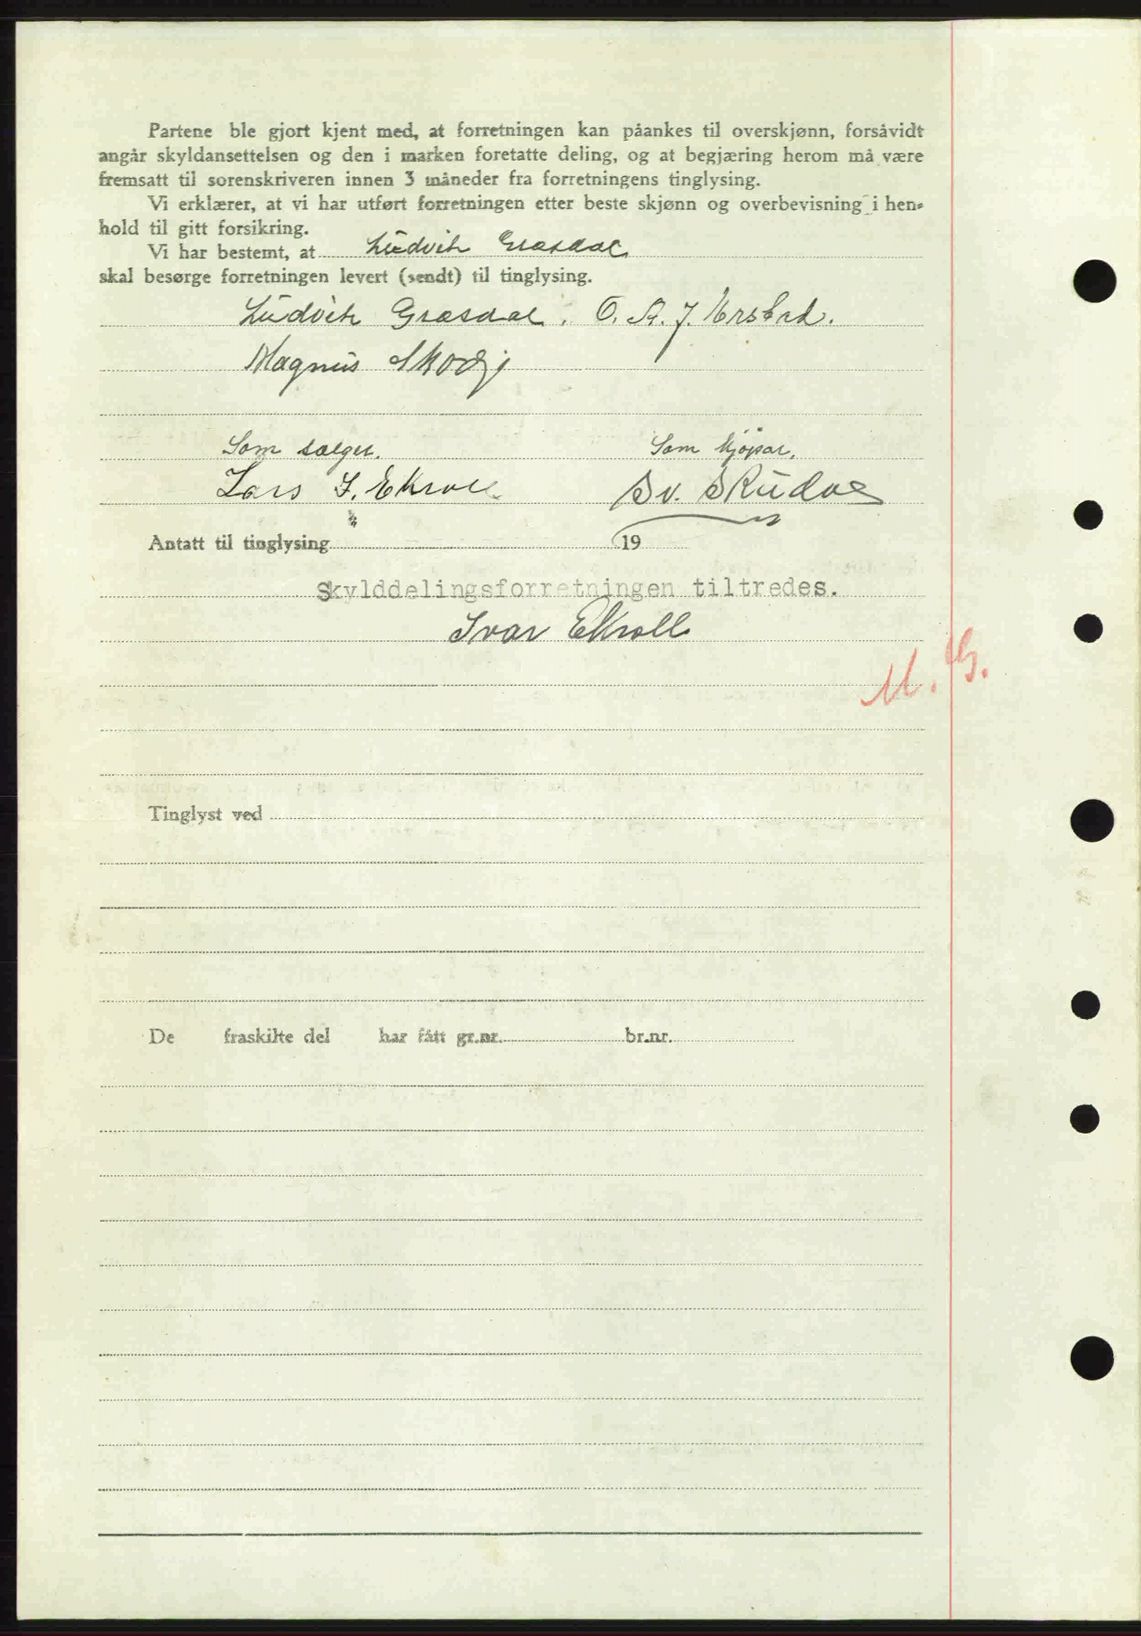 Partene ble gjort kjent med, at forretningen kan påankes til overskjønn, forsåvidt
angår skyldansettelsen og den i marken foretatte deling, og at begjæring herom må være
fremsatt til sorenskriveren innen 3 måneder fra forretningens tinglysing.
Vi erklærer, at vi har utført forretningen etter beste skjønn og overbevisning i hen-
hold til gitt forsikring.
Vi har bestemt, at Ludvik Græsdal
skal besørge forretningen levert (sendt) til tinglysing.
Ludvik Græsdal. O. A. J. Urstad.
Magnus Skodje
Som sælger. Som kjøpar.
Lars I. Ekroll Sv.
Antatt til tinglysing 19
Skylddelingsforretningen tiltredes.
Ivar Ekroll
M. G.
Tinglyst ved
De fraskilte del har fått gr.nr. br.nr.